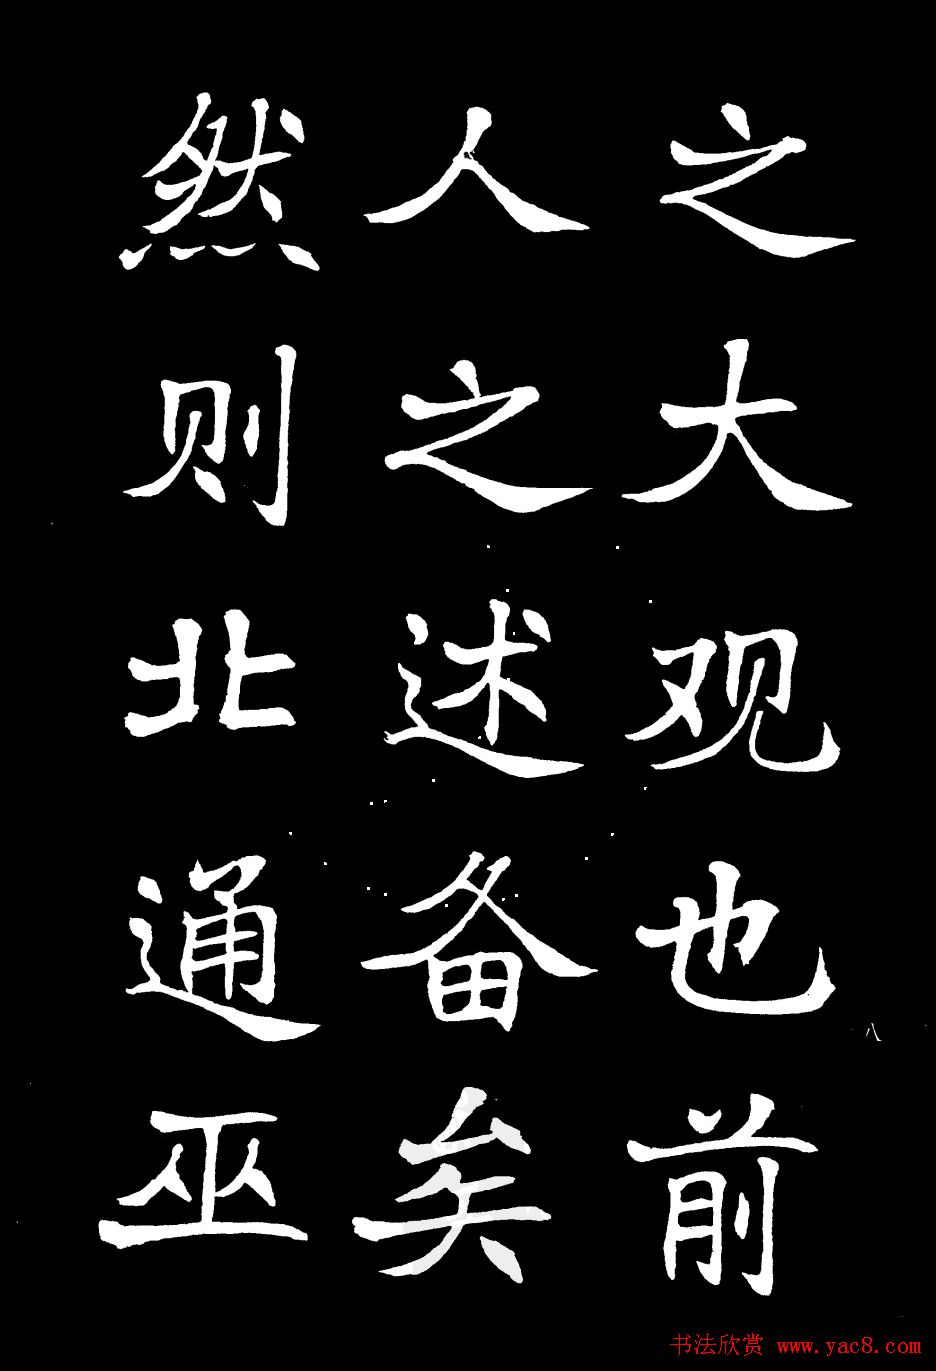 之大观也前
人之述备矣
然则北通巫
八
书法欣赏 www.yac8.com